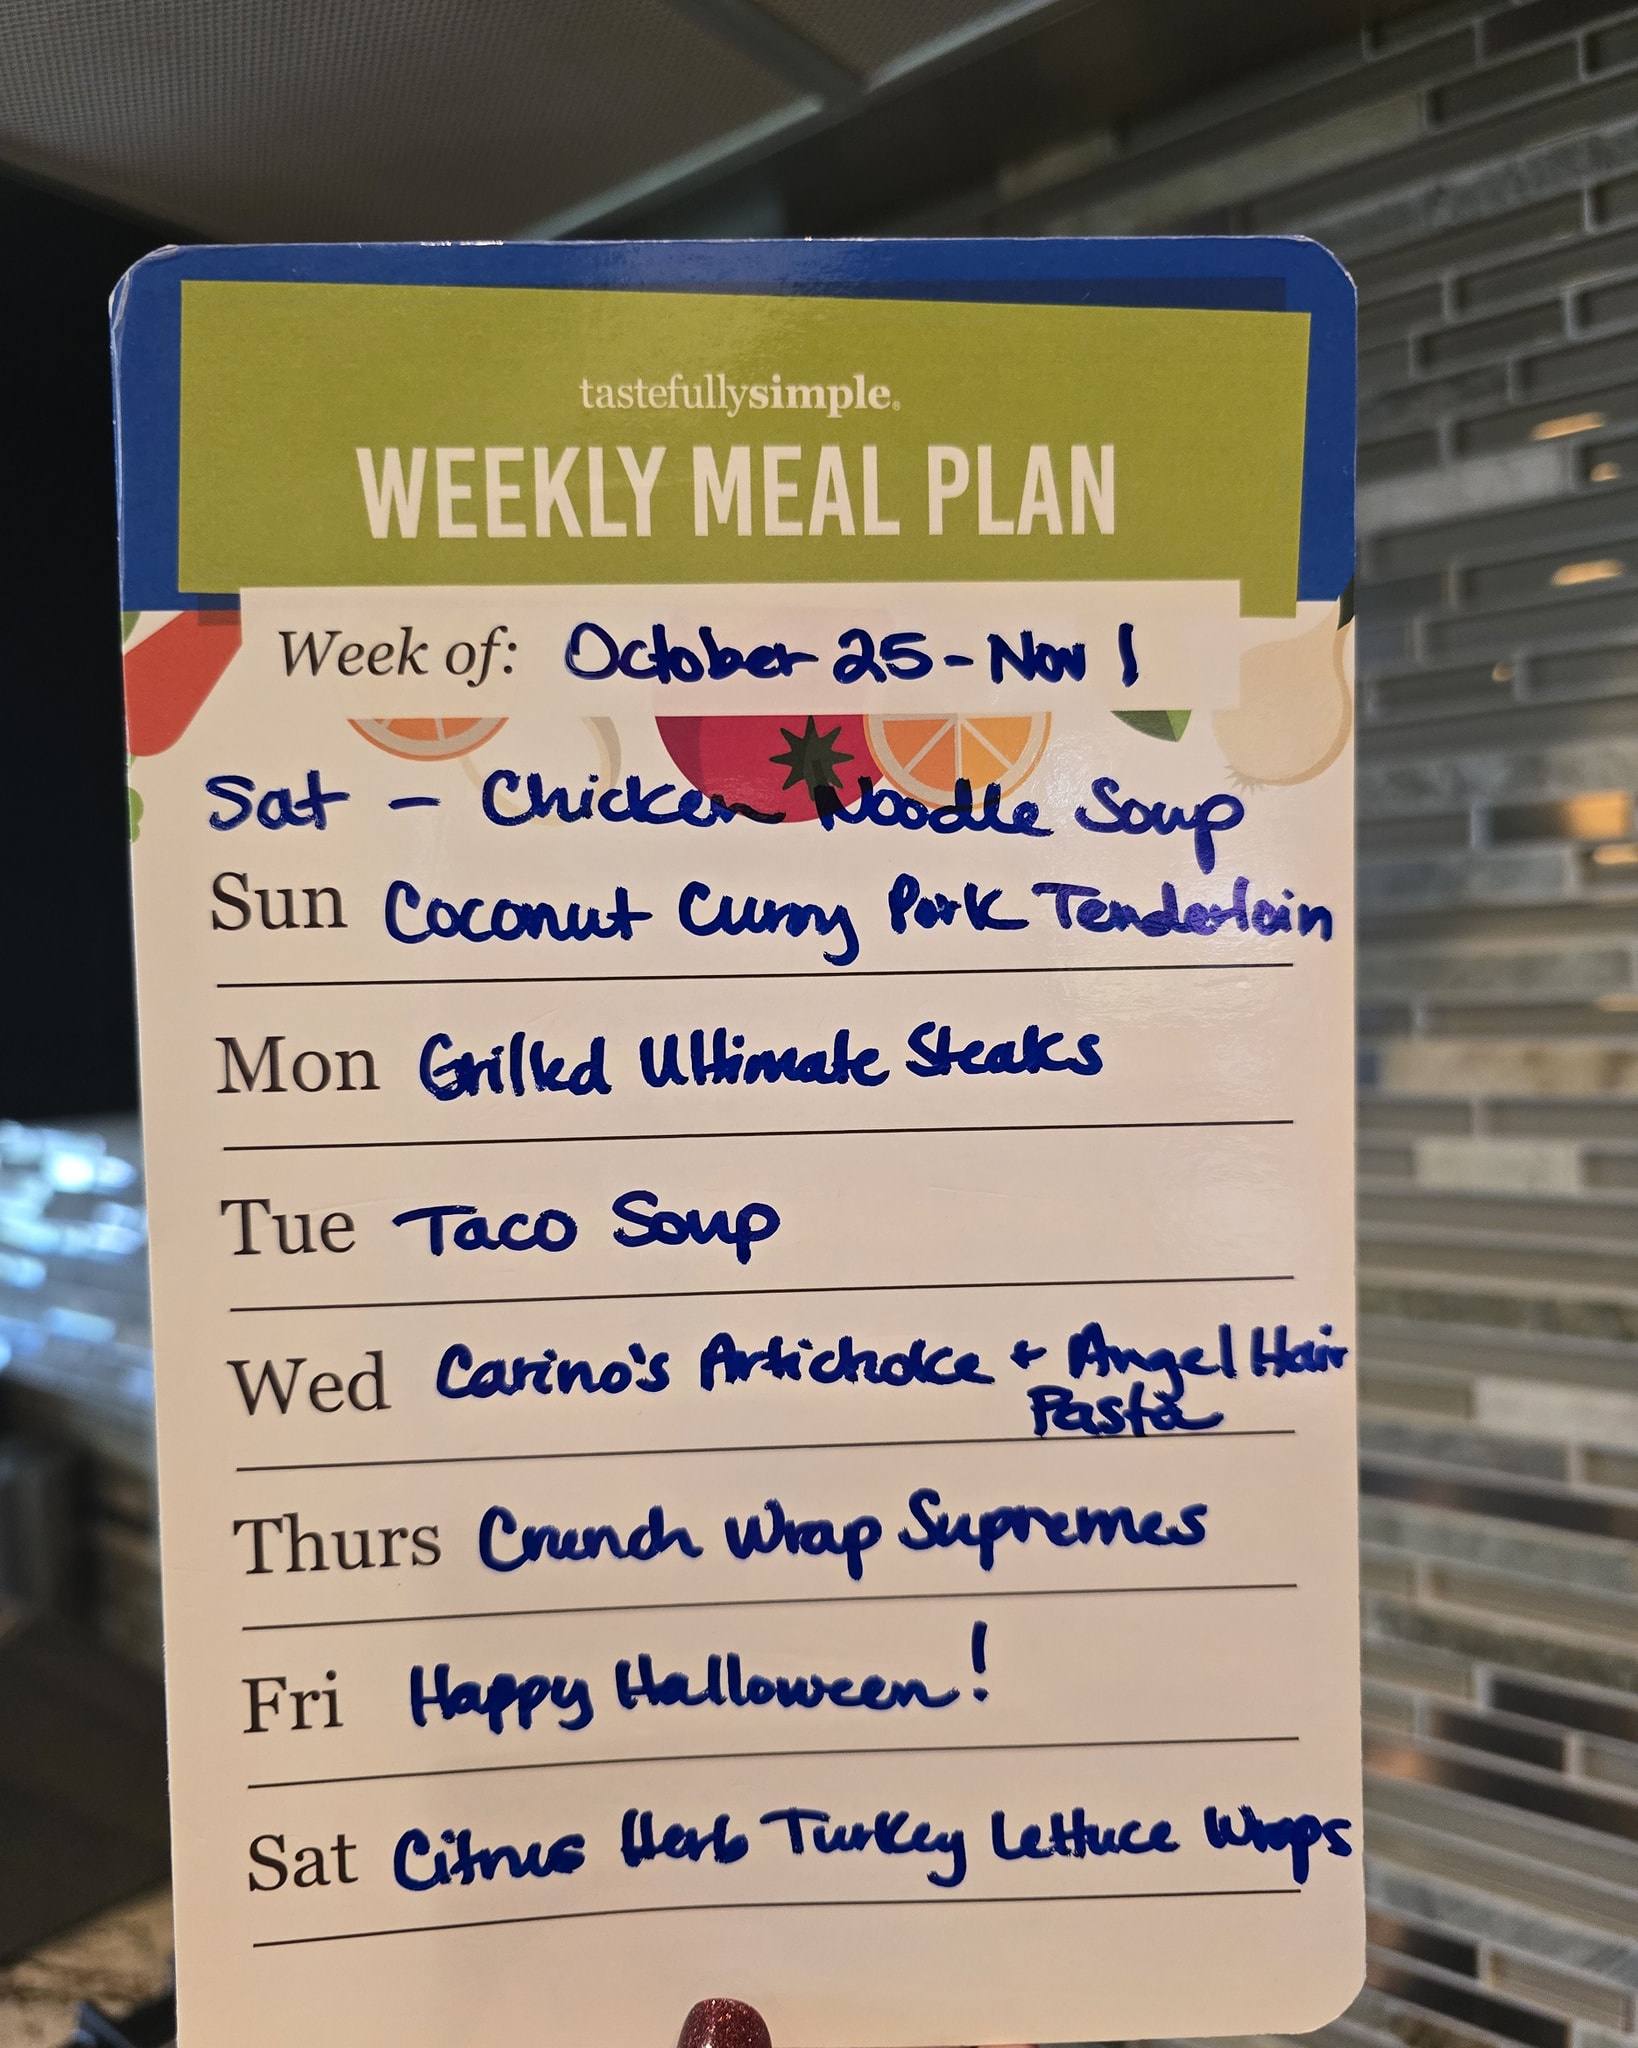 tastefullysimple®
WEEKLY MEAL PLAN
Week of: October 25 - Nov 1
Sat - Chicken Noodle Soup
Sun Coconut Curry Pork Tenderloin
Mon Grilled Ultimate Steaks
Tue Taco Soup
Wed Carino's Artichoke + Angel Hair
Pasta
Thurs Crunch Wrap Supremes
Fri Happy Halloween!
Sat Citrus Herb Turkey Lettuce Wraps